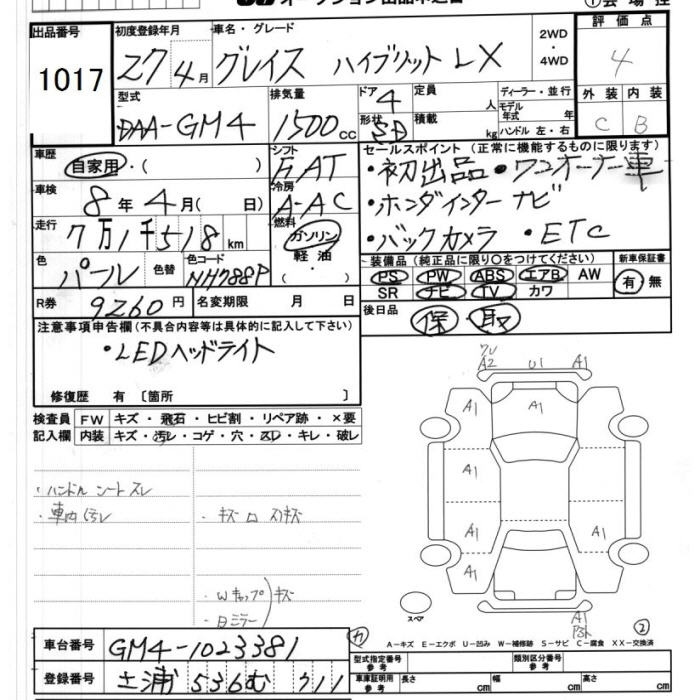 出品番号
1017
初度登録年月
27 4月
車名・グレード
グレイス ハイブリット LX
2WD
・
4WD
評価点
4
外装 内装
C B
型式
DAA-GM4
排気量
1500cc
ドア 4
形状 SD
定員 人
積載 kg
ディーラー・並行
モデル年式 年
ハンドル 左・右
車歴
自家用・( )
シフト
FAT
車検
8年 4月( 日)
冷房
A-AC
走行
7万1千518km
燃料
ガソリン
軽油
・( )
色
パール
色替
色コード
NH788P
R券 9260円
名変期限 月 日
セールスポイント(正常に機能するものに限ります)
・初出品・ワンオーナー車
・ホンダインターナビ
・バックカメラ ・ETC
装備品(純正品に限り○をつけてください)
PS PW ABS エアB AW
SR ナビ TV カワ
新車保証書
有・無
後日品
保・取
注意事項申告欄(不具合内容等は具体的に記入して下さい)
・LEDヘッドライト
修復歴 有〔箇所 〕
検査員 FW キズ・飛石・ヒビ割・リペア跡・×要
記入欄 内装 キズ・汚レ・コゲ・穴・スレ・キレ・破レ
・ハンドル シート スレ
・車内 汚レ
・キズロ スリキズ
・Wキャップ キズ
・Bミラー
A2 U1 A1
A1 A1 A1
A1
A1 A1
A1
スペア
A1
②
A-キズ E-エクボ U-凹み W-補修跡 S-サビ C-腐食 XX-交換済
車台番号 GM4-1023381
登録番号 土浦 536む 711
型式指定番号
参考
類別区分番号
参考
車庫証明用
参考
長さ cm 幅 cm 高さ cm